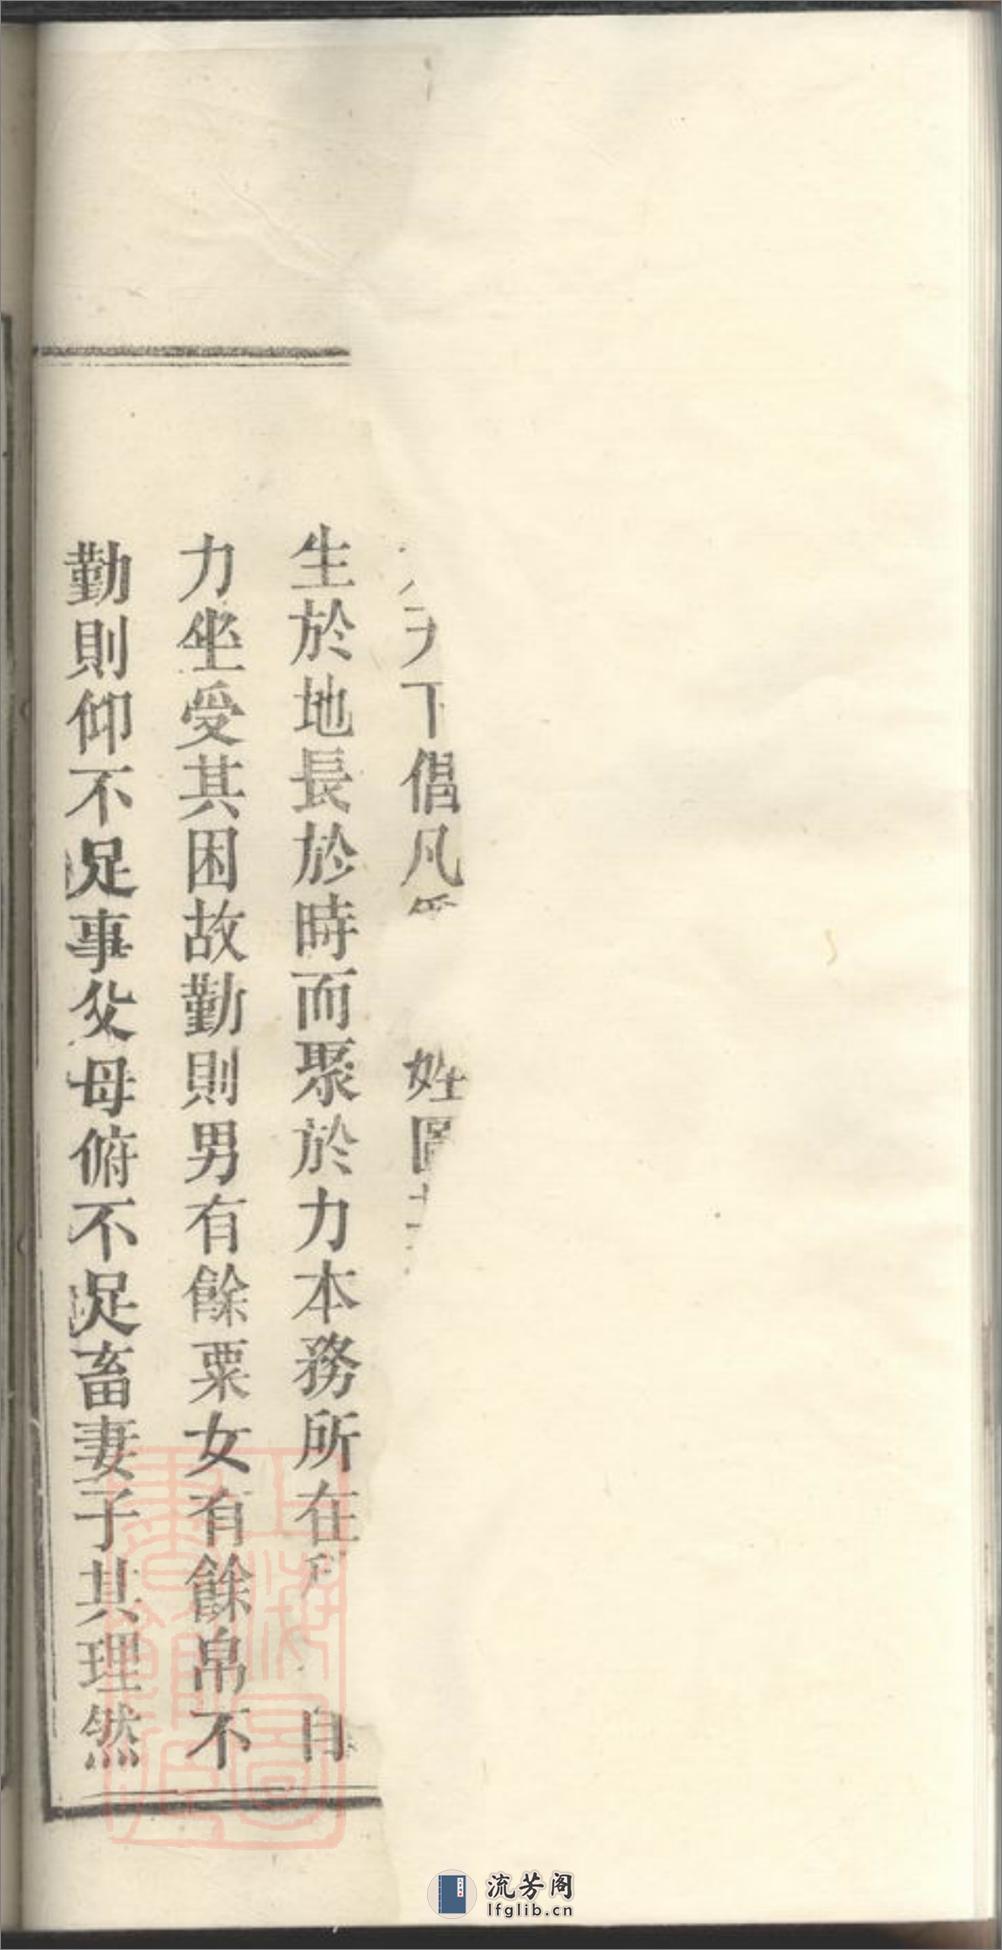 天下倡凡 姓
生於地長於時而聚於力本務所在 自
力坐受其困故勤則男有餘粟女有餘帛不
勤則仰不足事父母俯不足畜妻子其理然
流芳阁
lfglib.cn